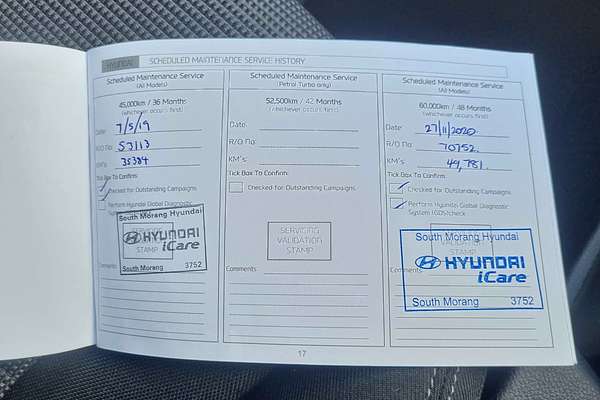 HYUNDAI SCHEDULED MAINTENANCE SERVICE HISTORY
Scheduled Maintenance Service
(All Models)
45,000km / 36 Months
(whichever occurs first)
Date: 7/5/19
R/O No: 53113
KM's: 35384
Tick Box To Confirm:
Checked for Outstanding Campaigns
Perform Hyundai Global Diagnostic
South Morang Hyundai
HYUNDAI
iCare
STAMP
South Morang 3752
Comments
Scheduled Maintenance Service
(Petrol Turbo only)
52,500km / 42 Months
(whichever occurs first)
Date:
R/O No:
KM's:
Tick Box To Confirm:
Checked for Outstanding Campaigns
SERVICING
VALIDATION
STAMP
Comments:
Scheduled Maintenance Service
(All Models)
60,000km / 48 Months
(whichever occurs first)
Date: 27/11/2020
R/O No: 70752.
KM's: 49,781.
Tick Box To Confirm:
Checked for Outstanding Campaigns
Perform Hyundai Global Diagnostic
System (GDS) check
South Morang Hyundai
HYUNDAI
iCare
South Morang 3752
Comments
17